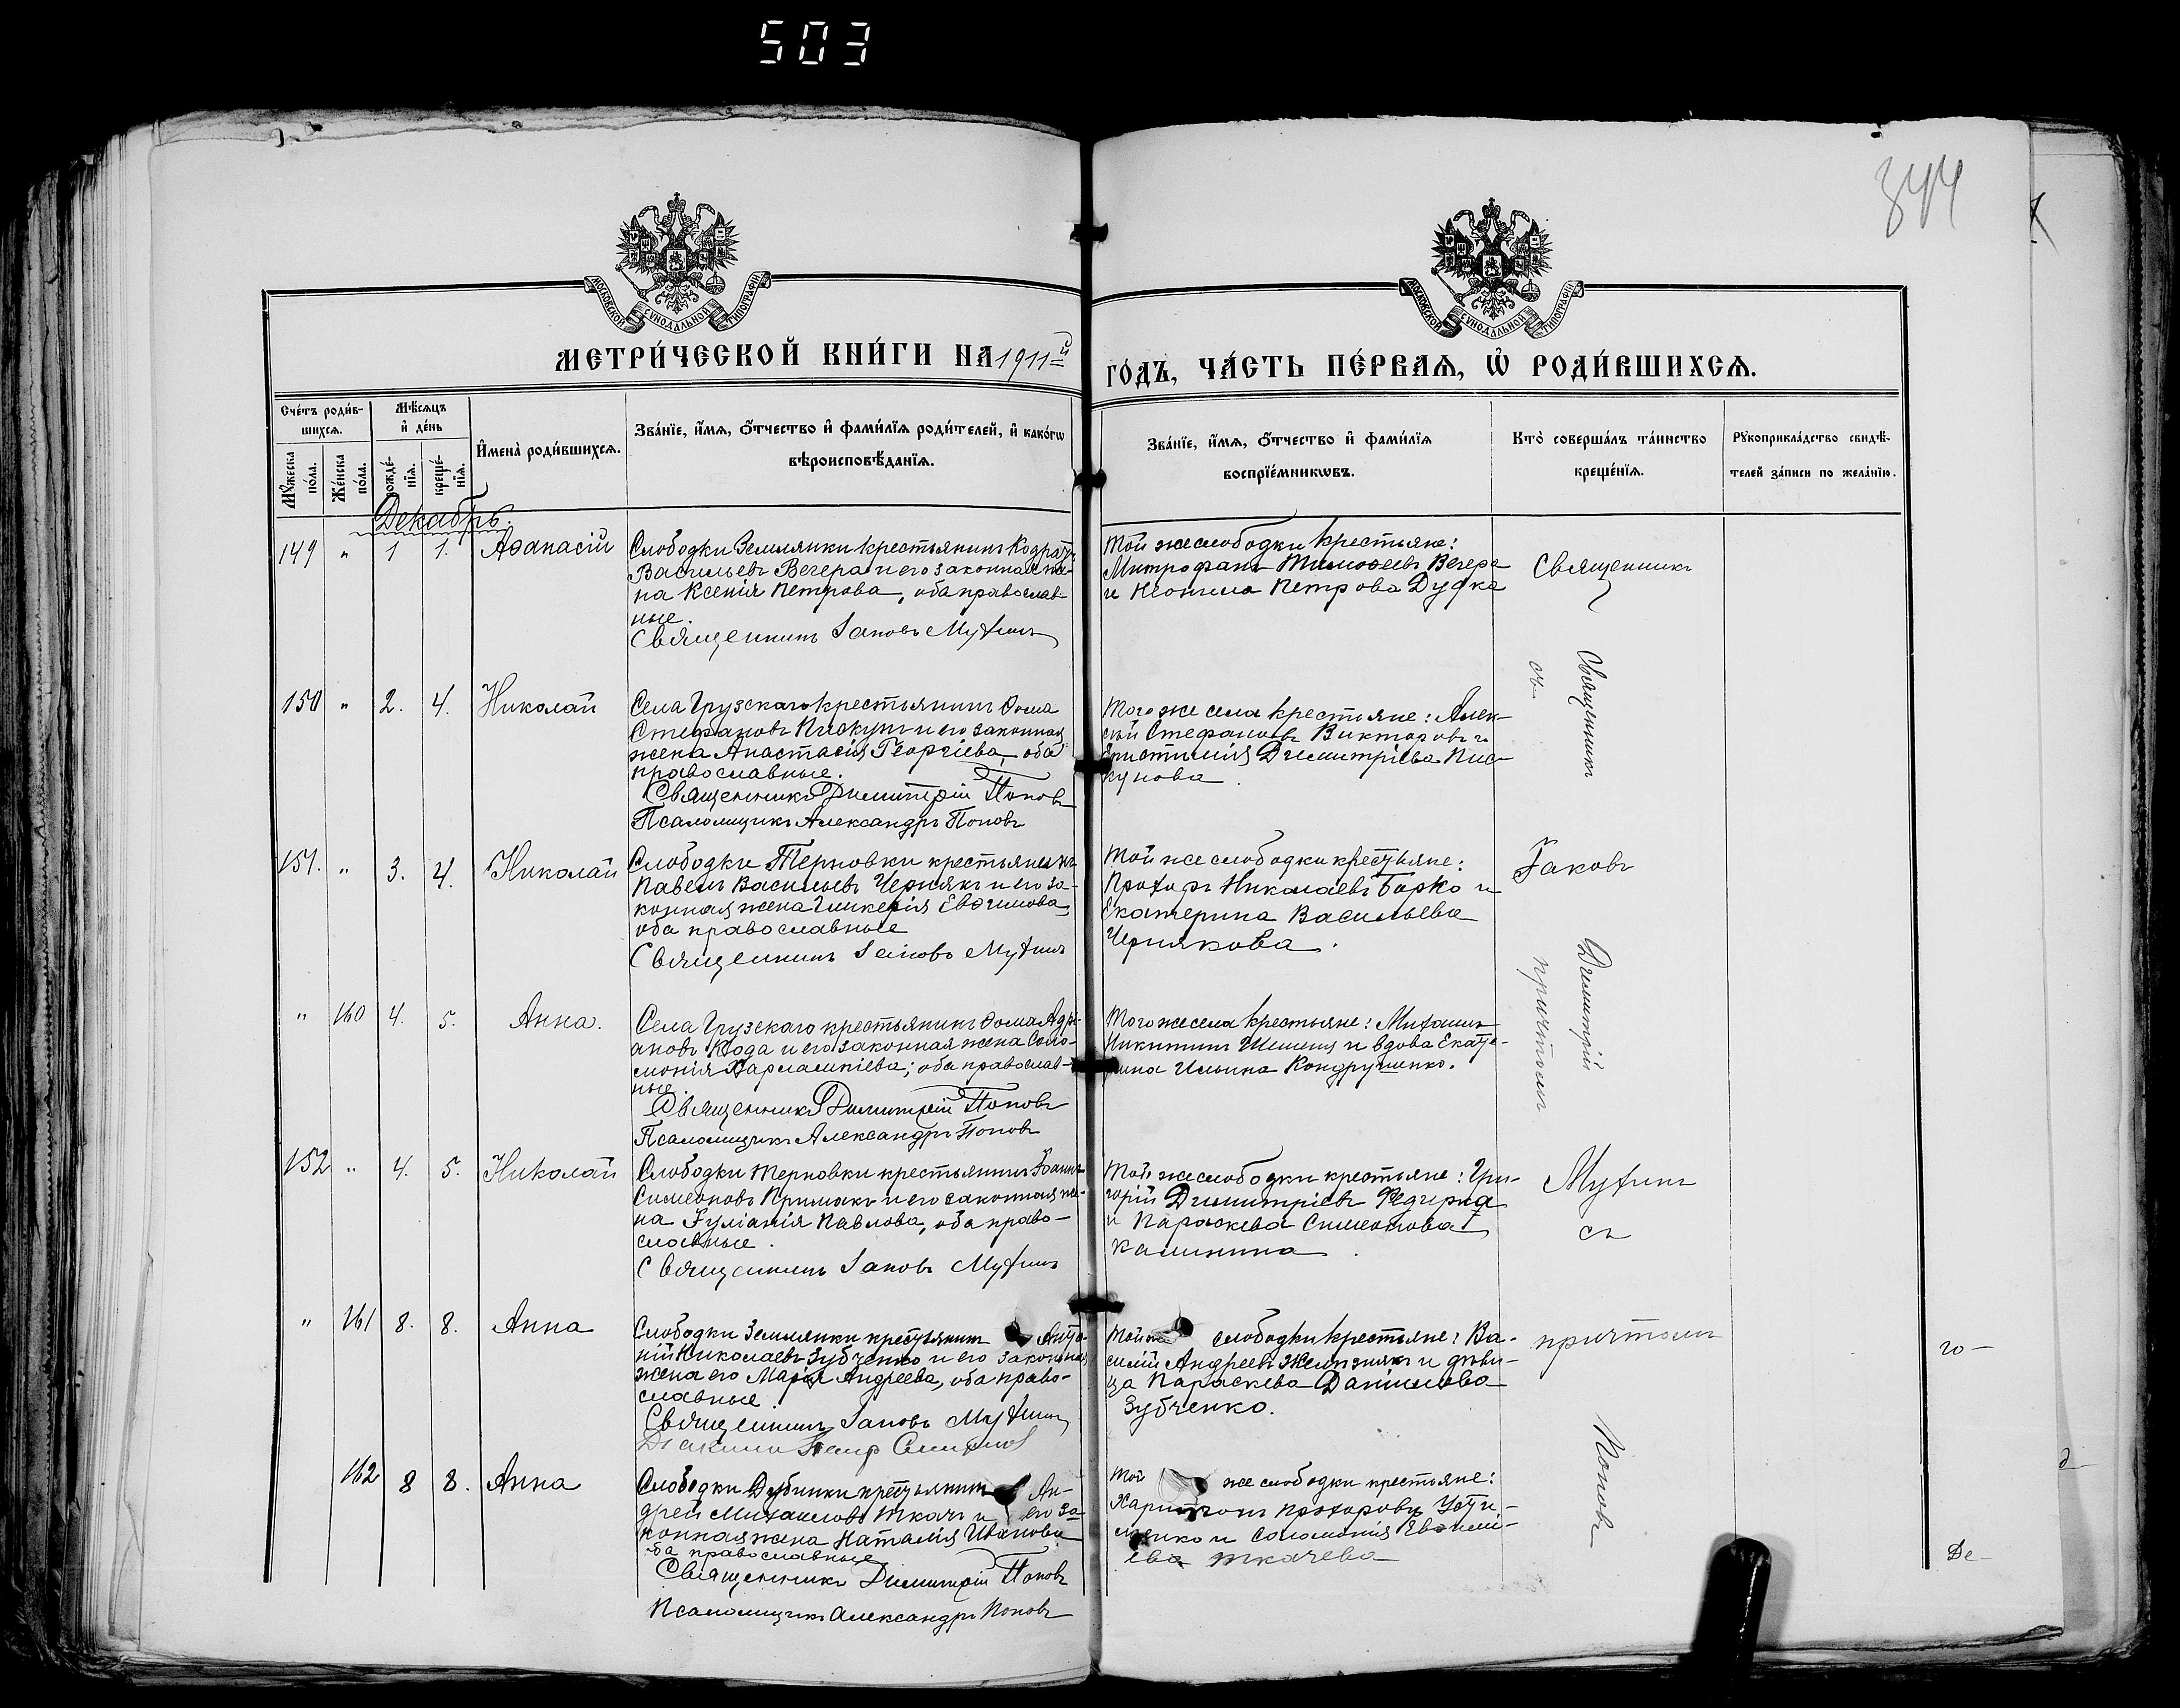 503
344
МОСКОВСКОЙ СѴНОДАЛЬНОЙ ТИПОГРАФІИ
МОСКОВСКОЙ СѴНОДАЛЬНОЙ ТИПОГРАФІИ
МЕТРИ́ЧЕСКОЙ КНИ́ГИ НА 1911й
ГО́ДЪ, ЧА́СТЬ ПЕ́РВАѦ, Ѡ҆ РОДИ́ВШИХСѦ.
Сче́тъ роди́в-
шихсѧ.
Мꙋ́жеска по́ла.
Же́нска по́ла.
Мѣ́сѧцъ и҆ де́нь
рожде́-нїѧ.
креще́-нїѧ.
И҆мена̀ роди́вшихсѧ.
Зва́нїе, и҆́мѧ, ѻ҆́тчество и҆ фами́лїѧ роди́телей, и҆ како́гѡ
вѣроисповѣ́данїѧ.
Зва́нїе, и҆́мѧ, ѻ҆́тчество и҆ фами́лїѧ
воспрїе́мникѡвъ.
Кто̀ соверша́лъ та́инство
креще́нїѧ.
Рꙋкоприкла́дство свидѣ́-
телей за́писи по жела́нїю.
Декабрь.
149 " 1 1. Аѳанасій
Слободки Землянки крестьянинъ Кодратъ
Васильевъ Вечера и его законная же-
на Ксенія Петрова, оба православ-
ные.
Священникъ Іаковъ Мухинъ
Той же слободки крестьяне:
Митрофанъ Тимоѳеевъ Вечера
и Неонила Петрова Дудка
Священникъ
150 " 2. 4. Николай
Села Грузскаго крестьянинъ Ѳома
Стефановъ Пискунъ и его законная
жена Анастасія Георгіева, оба
православные.
Священникъ Димитрій Поповъ
Псаломщикъ Александръ Поповъ
Того же села крестьяне: Алек-
сѣй Стефановъ Викторовъ и
Христинія Димитріева Пис-
кунова
Священникъ
151. " 3. 4. Николай
Слободки Терновки крестьянинъ
Павелъ Васильевъ Чернякъ и его за-
конная жена Гликерія Евѳимова,
оба православные
Священникъ Іаковъ Мухинъ
Той же слободки крестьяне:
Прохоръ Николаевъ Борко и
Екатерина Васильева
Чернякова.
Іаковъ
" 160 4. 5. Анна.
Села Грузскаго крестьянинъ Ѳома Адрі-
ановъ Кода и его законная жена Соло-
монія Харлампіева; оба православ-
ные.
Священникъ Димитрій Поповъ
Псаломщикъ Александръ Поповъ
Того же села крестьяне: Михаилъ
Никитинъ и вдова Екате-
рина Ильина Кондрушенко.
Димитрій
причтомъ
152 " 4. 5. Николай
Слободки Терновки крестьянинъ Іоаннъ
Симеоновъ Примакъ и его законная же-
на Іуліанія Павлова, оба право-
славные.
Священникъ Іаковъ Мухинъ
Той же слободки крестьяне: Гри-
горій Димитріевъ
и Параскева Симеонова
Калинина.
Мухинъ
съ
" 161 8. 8. Анна
Слободки Землянки крестьянинъ Анто-
ній Николаевъ Зубченко и его законная
жена его Марія Андреева, оба право-
славные.
Священникъ Іаковъ Мухинъ
Той же слободки крестьяне: Ва-
силій Андреевъ Желѣзнякъ и дѣви-
ца Параскева Даніилова
Зубченко.
причтомъ
го-
162 8 8. Анна
Слободки Дубинки крестьянинъ Ан-
дрей Михаиловъ Ткачъ и его за-
конная жена Наталія Иванова
оба православные
Священникъ Димитрій Поповъ
Псаломщикъ Александръ Поповъ
Той же слободки крестьяне:
Харитонъ Прохоровъ Усти-
менко и Соломонія Евѳимі-
ева Ткачева
Поповъ
Де-